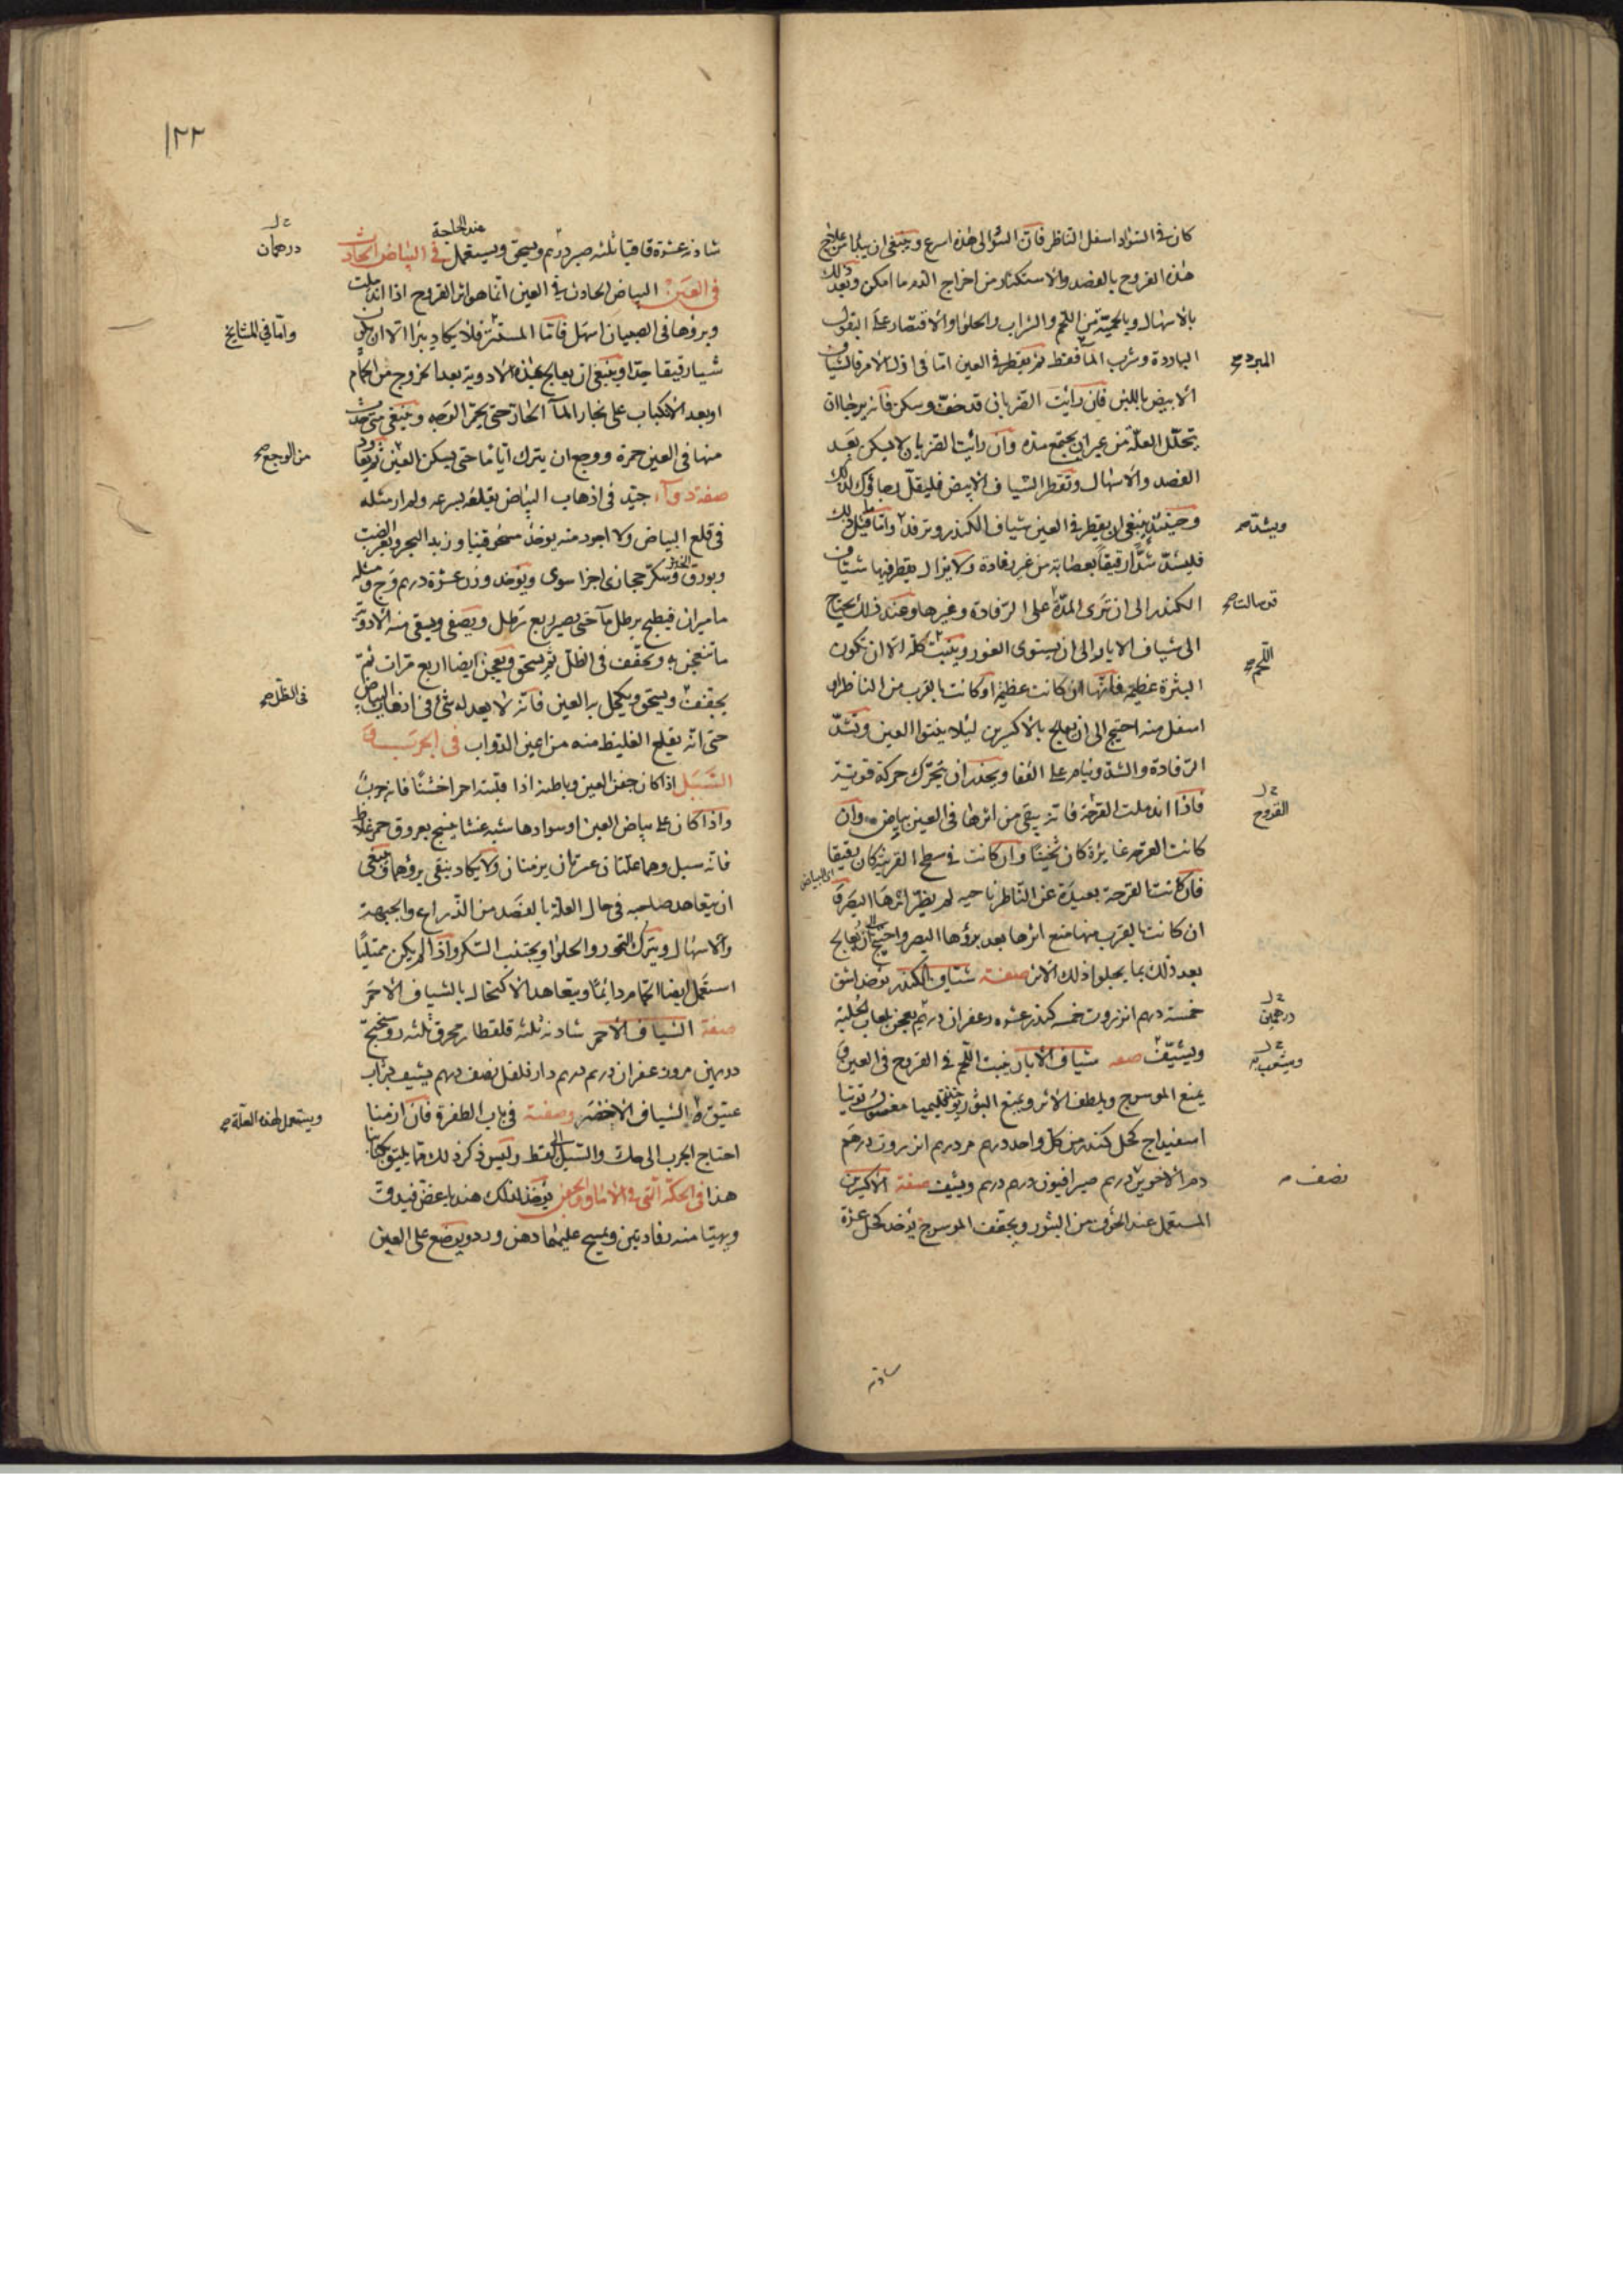 كان في السواد اسفل الناظر فان السؤ الى هذه اسرع وينبغي ان يبدا من علاج
هذه القروح بالفصد والاستكثار من اخراج الدم ما امكن وبعد ذلك
بالاسهال وبالحمية من اللحم والشراب والحلوا والاقتصار على البقول
الباردة وشرب المآ فقط ثم يقطر في العين اما في اول الامر فالشياف
المبرد صح
الابيض باللبن فان رايت الضربان قد خف وسكن فانه يرجا ان
يتحلل العلة من غير ان يجتمع مده وان رايت الضربان لا يسكن بعد
الفصد والاسهال وتقطر الشياف الابيض فليقل رجاؤك لذلك
وحينئذ ينبغي ان يقطر في العين شياف الكندر وترفد واما قبل ذلك
ويشد صح
فليشد شدا رقيقا بعصابة من غير رفادة ولا يزال يقطر فيها شياف
الكندر الى ان ترى المدة على الرفادة وغيرها وعند ذلك يحتاج
قد سالت صح
الى شياف الابار الى ان يستوى الغور وينبت كله الا ان تكون
اللحم صح
البثرة عظيمة فانها ان كانت عظيمة او كانت بالقرب من الناظر او
اسفل منه احتيج الى ان يعالج بالاكسيرين ليلا ينتوا العين وتشد
الرفادة والشد وينام على القفا ويحذر ان يتحرك حركة قوية
فاذا اندملت القرحة فانه يبقى من اثرها في العين بياض وان
القروح
كانت القرحه غايرة كان ثخينا وان كانت في سطح القرنية كان رقيقا
فان كانت القرحة بعيدة عن الناظر ناحيه لم يضر اثرها البصر و
اى البياض
ان كانت بالقرب منها منع اثرها بعد برؤها البصر واحتيج الى ان يعالج
بعد ذلك بما يجلوا ذلك الاثر صفة شياف الكندر يؤخذ اشق
خمسة درهم انزروت خمسه كندر عشره زعفران درهم يعجن بلعاب الحلبة
درهمين
ويشيف صفه شياف الابار ينبت اللحم في القروح في العين و
يمنع الموسرج ويلطف الاثر ويمنع البثور يؤخذ اقليميا مغسول توتيا
اسفيداج كحل كندر من كل واحد درهم مر درهم انزروت درهم
دم الاخوين درهم صبر افيون درهم درهم ويشيف صفة الاكسيرين
نصف
المستعمل عند الخوف من البثور ويجفف الموسرج يؤخذ كحل عشرة
شادنه
١٢٢
شادنه عشرة قاقيا ثلثه صبر درهم ويسحق ويستعمل عند الحاجة في البياض الحادث
درهمان
في العين البياض الحادث في العين انما هو اثر القروح اذا اندملت
وبرؤها في الصبيان اسهل فاما المسنين فلا يكاد يبرا الا ان يكون
واما في المشايخ
شيا رقيقا جدا وينبغي ان يعالج بهذه الادوية بعد الخروج من الحمام
او بعد الانكباب على بخار المآ الحار حتى يحمر الوجه وينبغي متى حدث
منها في العين حمرة ووجع ان يترك اياما حتى يسكن العين ثم يعاود
من الوجع صح
صفة دوآء جيد في اذهاب البياض يقلعه بسرعه ولم ار مثله
في قلع البياض ولا اجود منه يوخذ مسحوقنيا وزبد البحر وبعر الضب
وبورق الخبز وسكر حجازى اجزا سوى ويؤخذ وزن عشرة درهم وج ومثله
ماميران فيطبخ برطل مآ حتى يصير ربع رطل ويصفى ويسقى منه الادوية
ما تنعجن به ويجفف في الظل ثم يسحق ويعجن ايضا اربع مرات ثم
يجفف ويسحق ويكحل به العين فانه لا يعدله شئ في اذهاب البياض
في الظل صح
حتى انه يقلع الغليظ منه من اعين الدواب في الجرب و
السبل اذا كان جفن العين وباطنه اذا قلبته احمر اخشنا فانه جرب
واذا كان على بياض العين او سوادها شبه غشا ينسج بعروق حمر غلاظ
فانه سبل وهما علتان عسرتان يزمنان ولا يكاد ينقى برؤهما وينبغي
ان يتعاهد صاحبه في حال العلة بالفصد من الذراع والجبهة
والاسهال ويترك التمور والحلوا ويجتنب السكر واذا لم يكن ممتليا
استعمل ايضا الحمام دائما ويتعاهد الاكتحال بالشياف الاحمر
صفة الشياف الاحمر شادنه ثلثه قلقطار محرق ثلثه روسختج
درهمين مر وزعفران درهم درهم دار فلفل نصف درهم يشيف بشراب
عتيق الشياف الاخضر وصفته في باب الظفرة فان ازمنا
ويستعمل لهذه العلة صح
احتاج الجرب الى حك والسبل الى لقط وليس ذكر ذلك مما يليق بكتابنا
هذا في الحكة التي في الاماق والجفن يؤخذ لذلك هندبا غض فيدق
ويهيا منه رفادتين ويمسح عليهما دهن ورد ويوضع على العين